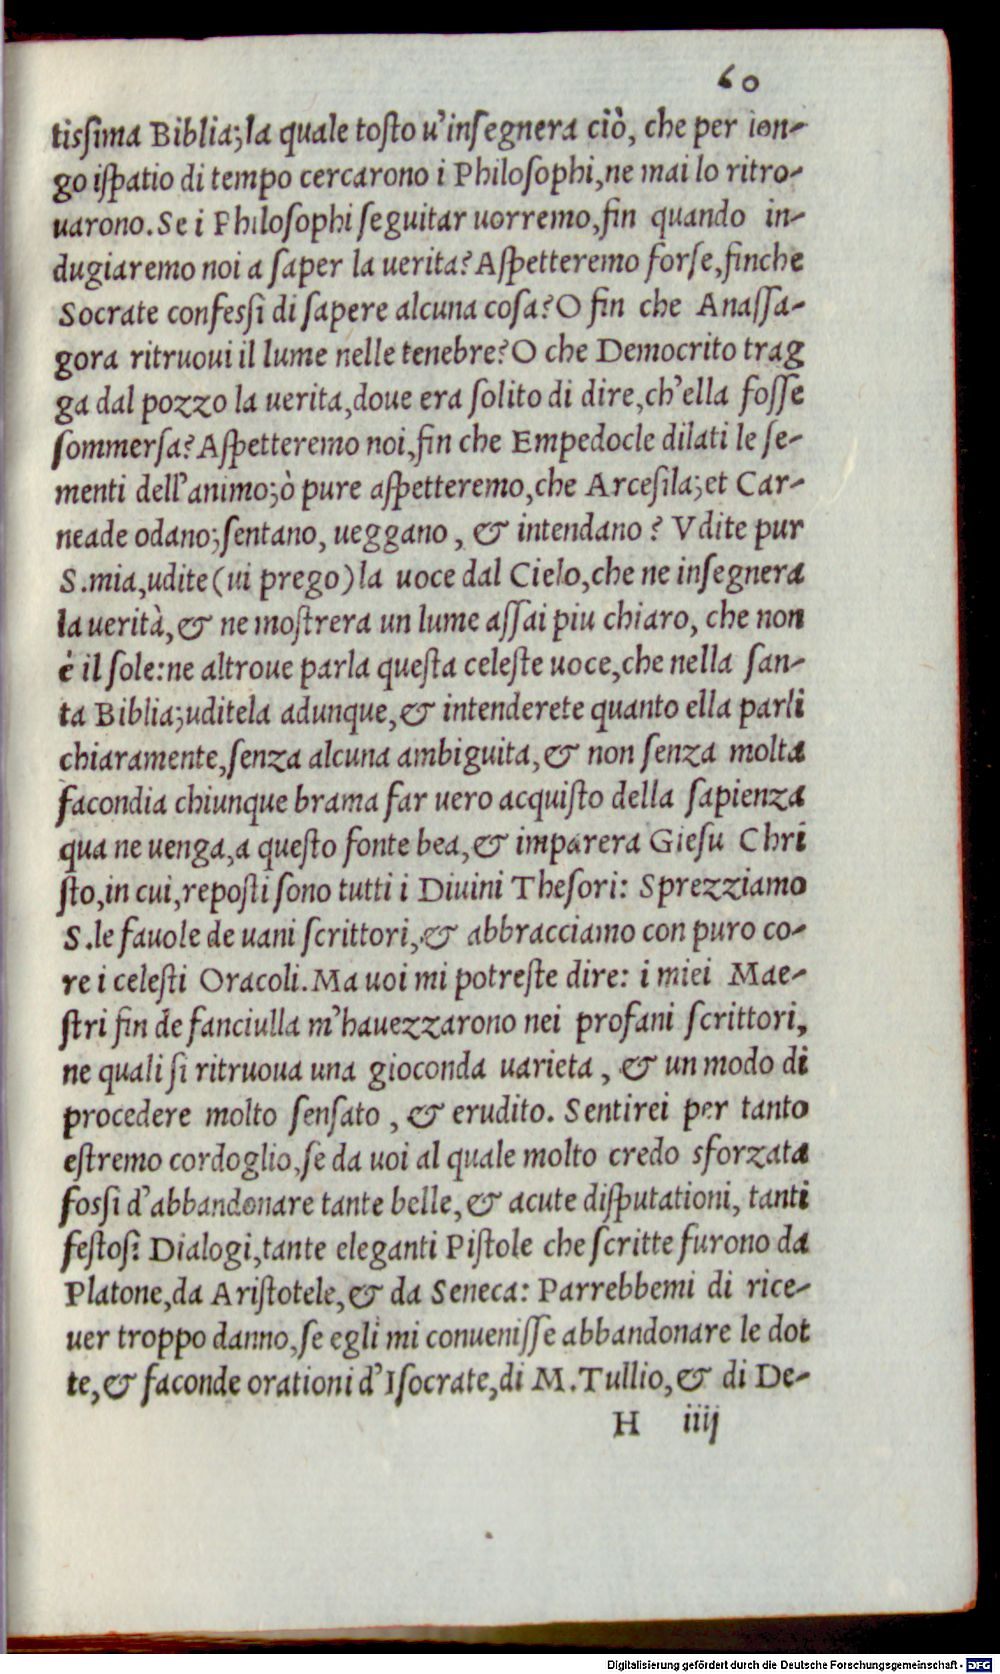 60
tissima Biblia; la quale tosto u'insegnera ciò, che per ion-
go ispatio di tempo cercarono i Philosophi, ne mai lo ritro-
uarono. Se i Philosophi seguitar uorremo, fin quando in-
dugiaremo noi a saper la uerita? Aspetteremo forse, finche
Socrate confessi di sapere alcuna cosa? O fin che Anassa-
gora ritruoui il lume nelle tenebre? O che Democrito trag
ga dal pozzo la uerita, doue era solito di dire, ch'ella fosse
sommersa? Aspetteremo noi, fin che Empedocle dilati le se-
menti dell'animo; ò pure aspetteremo, che Arcesila; et Car-
neade odano; sentano, ueggano, & intendano? Vdite pur
S. mia, udite (ui prego) la uoce dal Cielo, che ne insegnera
la uerità, & ne mostrera un lume assai piu chiaro, che non
è il sole: ne altroue parla questa celeste uoce, che nella san-
ta Biblia; uditela adunque, & intenderete quanto ella parli
chiaramente, senza alcuna ambiguita, & non senza molta
facondia chiunque brama far uero acquisto della sapienza
qua ne uenga, a questo fonte bea, & imparera Giesu Chri
sto, in cui, reposti sono tutti i Diuini Thesori: Sprezziamo
S. le fauole de uani scrittori, & abbracciamo con puro co-
re i celesti Oracoli. Ma uoi mi potreste dire: i miei Mae-
stri fin de fanciulla m'hauezzarono nei profani scrittori,
ne quali si ritruoua una gioconda uarieta, & un modo di
procedere molto sensato, & erudito. Sentirei per tanto
estremo cordoglio, se da uoi al quale molto credo sforzata
fossi d'abbandonare tante belle, & acute disputationi, tanti
festosi Dialogi, tante eleganti Pistole che scritte furono da
Platone, da Aristotele, & da Seneca: Parrebbemi di rice-
uer troppo danno, se egli mi conuenisse abbandonare le dot
te, & faconde orationi d'Isocrate, di M. Tullio, & di De-
H iiij
Digitalisierung gefördert durch die Deutsche Forschungsgemeinschaft - DFG